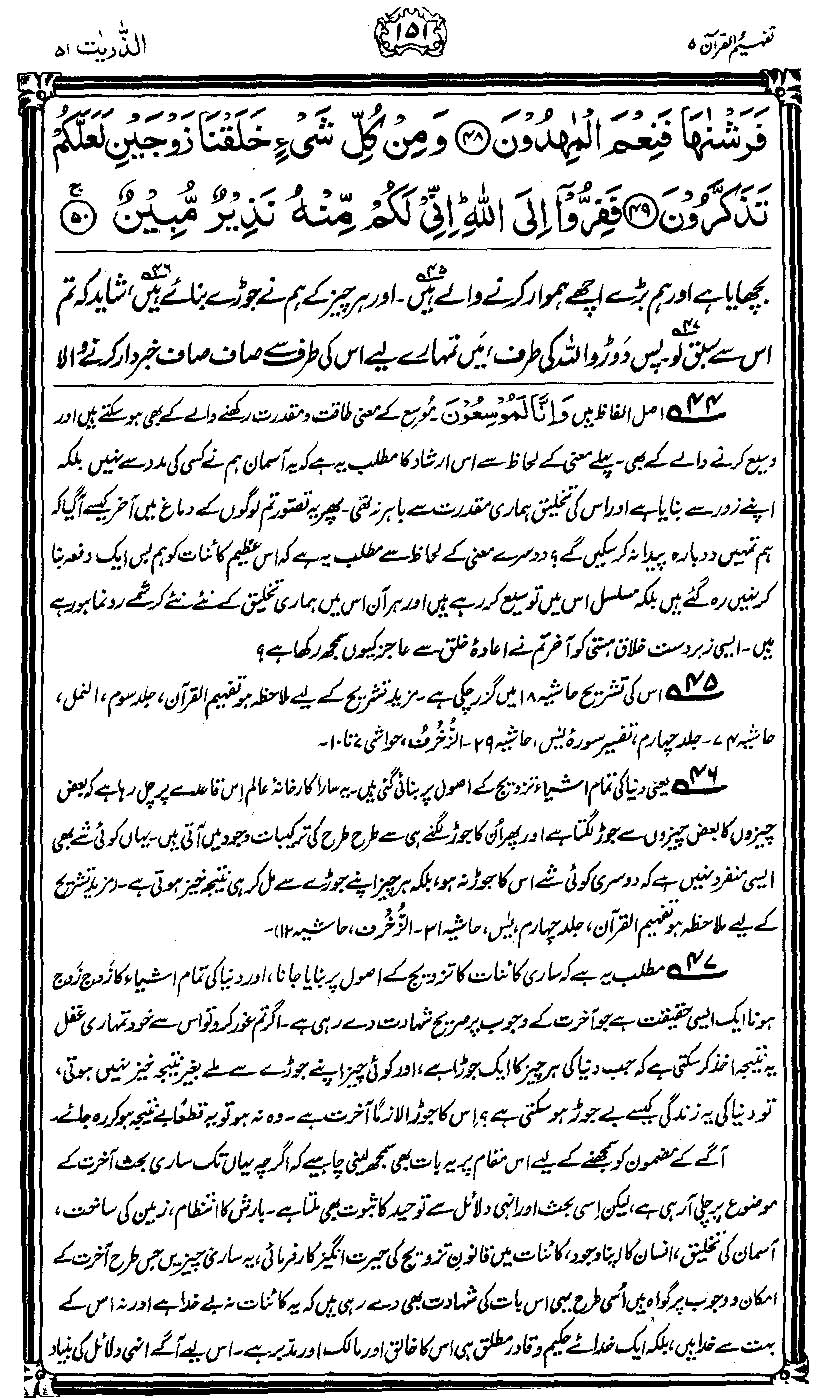 تفہیم القرآن ۵
۱۵۱
الذّٰریٰت ۵۱
فَرَشْنٰهَا فَنِعْمَ الْمٰهِدُوْنَ ﴿۴۸﴾ وَمِنْ كُلِّ شَیْءٍ خَلَقْنَا زَوْجَیْنِ لَعَلَّكُمْ
تَذَكَّرُوْنَ ﴿۴۹﴾ فَفِرُّوْۤا اِلَی اللّٰهِ ؕ اِنِّیْ لَكُمْ مِّنْهُ نَذِیْرٌ مُّبِیْنٌ ﴿۵۰﴾ ج
بچھایا ہے اور ہم بڑے اچھے ہموار کرنے والے ہیں۴۵۔ اور ہر چیز کے ہم نے جوڑے بنائے ہیں۴۶، شاید کہ تم
اس سے سبق لو۴۷۔ پس دَوڑو اللہ کی طرف، مَیں تمہارے لیے اس کی طرف سے صاف صاف خبردار کرنے والا
۴۴ اصل الفاظ ہیں وَاِنَّا لَمُوْسِعُوْنَ۔ مُوسِع کے معنی طاقت و مقدرت رکھنے والے کے بھی ہو سکتے ہیں اور
وسیع کرنے والے کے بھی۔ پہلے معنی کے لحاظ سے اس ارشاد کا مطلب یہ ہے کہ یہ آسمان ہم نے کسی کی مدد سے نہیں بلکہ
اپنے زور سے بنایا ہے اور اس کی تخلیق ہماری مقدرت سے باہر نہ تھی۔ پھر یہ تصور تم لوگوں کے دماغ میں آخر کیسے آگیا کہ
ہم تمہیں دوبارہ پیدا نہ کر سکیں گے؟ دوسرے معنی کے لحاظ سے مطلب یہ ہے کہ اس عظیم کائنات کو ہم بس ایک دفعہ بنا
کر نہیں رہ گئے ہیں بلکہ مسلسل اس میں توسیع کر رہے ہیں اور ہر آن اس میں ہماری تخلیق کے نئے نئے کرشمے رونما ہو رہے
ہیں۔ ایسی زبردست خلاق ہستی کو آخر تم نے اعادۂ خلق سے عاجز کیوں سمجھ رکھا ہے؟
۴۵ اس کی تشریح حاشیہ ۱۸ میں گزر چکی ہے۔ مزید تشریح کے لیے ملاحظہ ہو تفہیم القرآن، جلد سوم، النمل،
حاشیہ ۷۴۔ جلد چہارم، تفسیر سورۂ یٰس، حاشیہ ۲۹۔ الزُّخْرُف، حواشی ۷ تا ۱۰۔
۴۶ یعنی دنیا کی تمام اشیاء تزویج کے اصول پر بنائی گئی ہیں۔ یہ سارا کارخانۂ عالم اِس قاعدے پر چل رہا ہے کہ بعض
چیزوں کا بعض چیزوں سے جوڑ لگتا ہے اور پھر اُن کا جوڑ لگنے ہی سے طرح طرح کی ترکیبات وجود میں آتی ہیں۔ یہاں کوئی شے بھی
ایسی منفرد نہیں ہے کہ دوسری کوئی شے اس کا جوڑ نہ ہو، بلکہ ہر چیز اپنے جوڑے سے مل کر ہی نتیجہ خیز ہوتی ہے۔ (مزید تشریح
کے لیے ملاحظہ ہو تفہیم القرآن، جلد چہارم، یٰس، حاشیہ ۳۱۔ الزُّخْرُف، حاشیہ ۱۲)۔
۴۷ مطلب یہ ہے کہ ساری کائنات کا تزویج کے اصول پر بنایا جانا، اور دنیا کی تمام اشیاء کا زَوج زَوج
ہونا ایک ایسی حقیقت ہے جو آخرت کے وجوب پر صریح شہادت دے رہی ہے۔ اگر تم غور کرو تو اس سے خود تمہاری عقل
یہ نتیجہ اخذ کر سکتی ہے کہ جب دنیا کی ہر چیز کا ایک جوڑا ہے، اور کوئی چیز اپنے جوڑے سے ملے بغیر نتیجہ خیز نہیں ہوتی،
تو دنیا کی یہ زندگی کیسے بے جوڑ ہو سکتی ہے؟ اس کا جوڑ لازماً آخرت ہے۔ وہ نہ ہو تو یہ قطعاً بے نتیجہ ہو کر رہ جائے۔
آگے کے مضمون کو سمجھنے کے لیے اس مقام پر یہ بات بھی سمجھ لینی چاہیے کہ اگرچہ یہاں تک ساری بحث آخرت کے
موضوع پر چلی آرہی ہے، لیکن اِسی بحث اور انہی دلائل سے توحید کا ثبوت بھی ملتا ہے۔ بارش کا انتظام، زمین کی ساخت،
آسمان کی تخلیق، انسان کا اپنا وجود، کائنات میں قانونِ تزویج کی حیرت انگیز کارفرمائی، یہ ساری چیزیں جس طرح آخرت کے
امکان و وجوب پر گواہ ہیں اُسی طرح یہی اس بات کی شہادت بھی دے رہی ہیں کہ یہ کائنات نہ بے خدا ہے اور نہ اس کے
بہت سے خدا ہیں، بلکہ ایک خدائے حکیم و قادرِ مطلق ہی اس کا خالق اور مالک اور مدبر ہے۔ اس لیے آگے انہی دلائل کی بنیاد